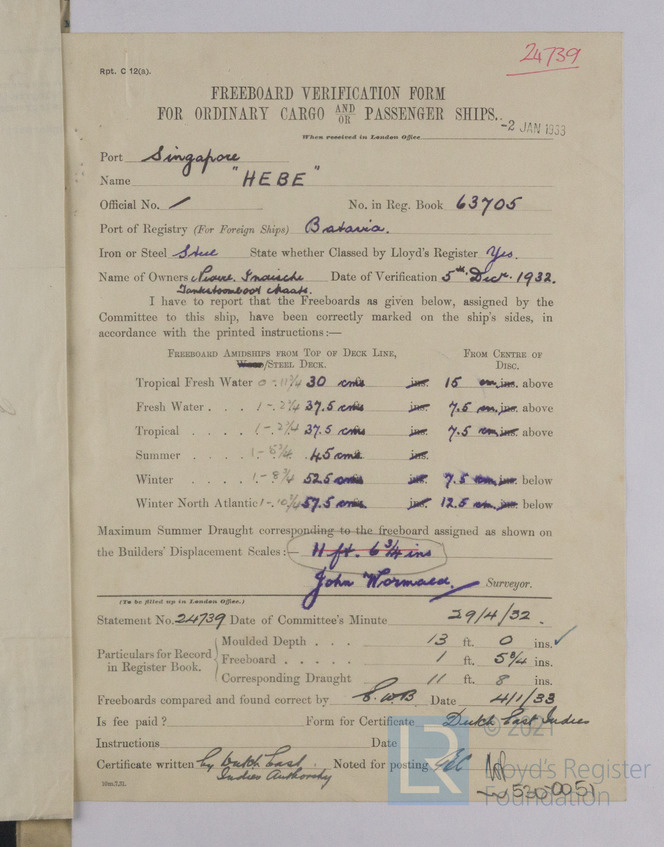 24739
Rpt. C 12(a).
FREEBOARD VERIFICATION FORM
FOR ORDINARY CARGO AND/OR PASSENGER SHIPS.
When received in London Office -2 JAN 1933
Port Singapore
Name "HEBE"
Official No. / No. in Reg. Book 63705
Port of Registry (For Foreign Ships) Batavia.
Iron or Steel Steel State whether Classed by Lloyd's Register Yes.
Name of Owners Indische Date of Verification 5th Decr. 1932.
I have to report that the Freeboards as given below, assigned by the
Committee to this ship, have been correctly marked on the ship's sides, in
accordance with the printed instructions:—
FREEBOARD AMIDSHIPS FROM TOP OF DECK LINE, FROM CENTRE OF
Wood/STEEL DECK. DISC.
Tropical Fresh Water 0-11¾ 30 cms ins. 15 cm ins. above
Fresh Water . . . 1-2¾ 37.5 cms ins. 7.5 cm ins. above
Tropical . . . . 1-2¾ 37.5 cms ins. 7.5 cm ins. above
Summer . . . . 1-5¾ 45 cms ins.
Winter . . . . 1-8¾ 52.5 cms ins. 7.5 cm ins. below
Winter North Atlantic 1-10¾ 57.5 cms ins. 12.5 cm ins. below
Maximum Summer Draught corresponding to the freeboard assigned as shown on
the Builders' Displacement Scales:— 11 ft. 6¾ ins
John Wormald. Surveyor.
(To be filled up in London Office.)
Statement No. 24739 Date of Committee's Minute 29/4/32.
Particulars for Record in Register Book.
Moulded Depth . . . 13 ft. 0 ins.
Freeboard . . . . . 1 ft. 5¾ ins.
Corresponding Draught 11 ft. 8 ins.
Freeboards compared and found correct by Date 4/1/33
Is fee paid? Form for Certificate Dutch East Indies
Instructions Date
Certificate written by Dutch East Noted for posting
Indies Authority
10m,7,31.
LR
© 2021
Lloyd's Register
Foundation
530 0051